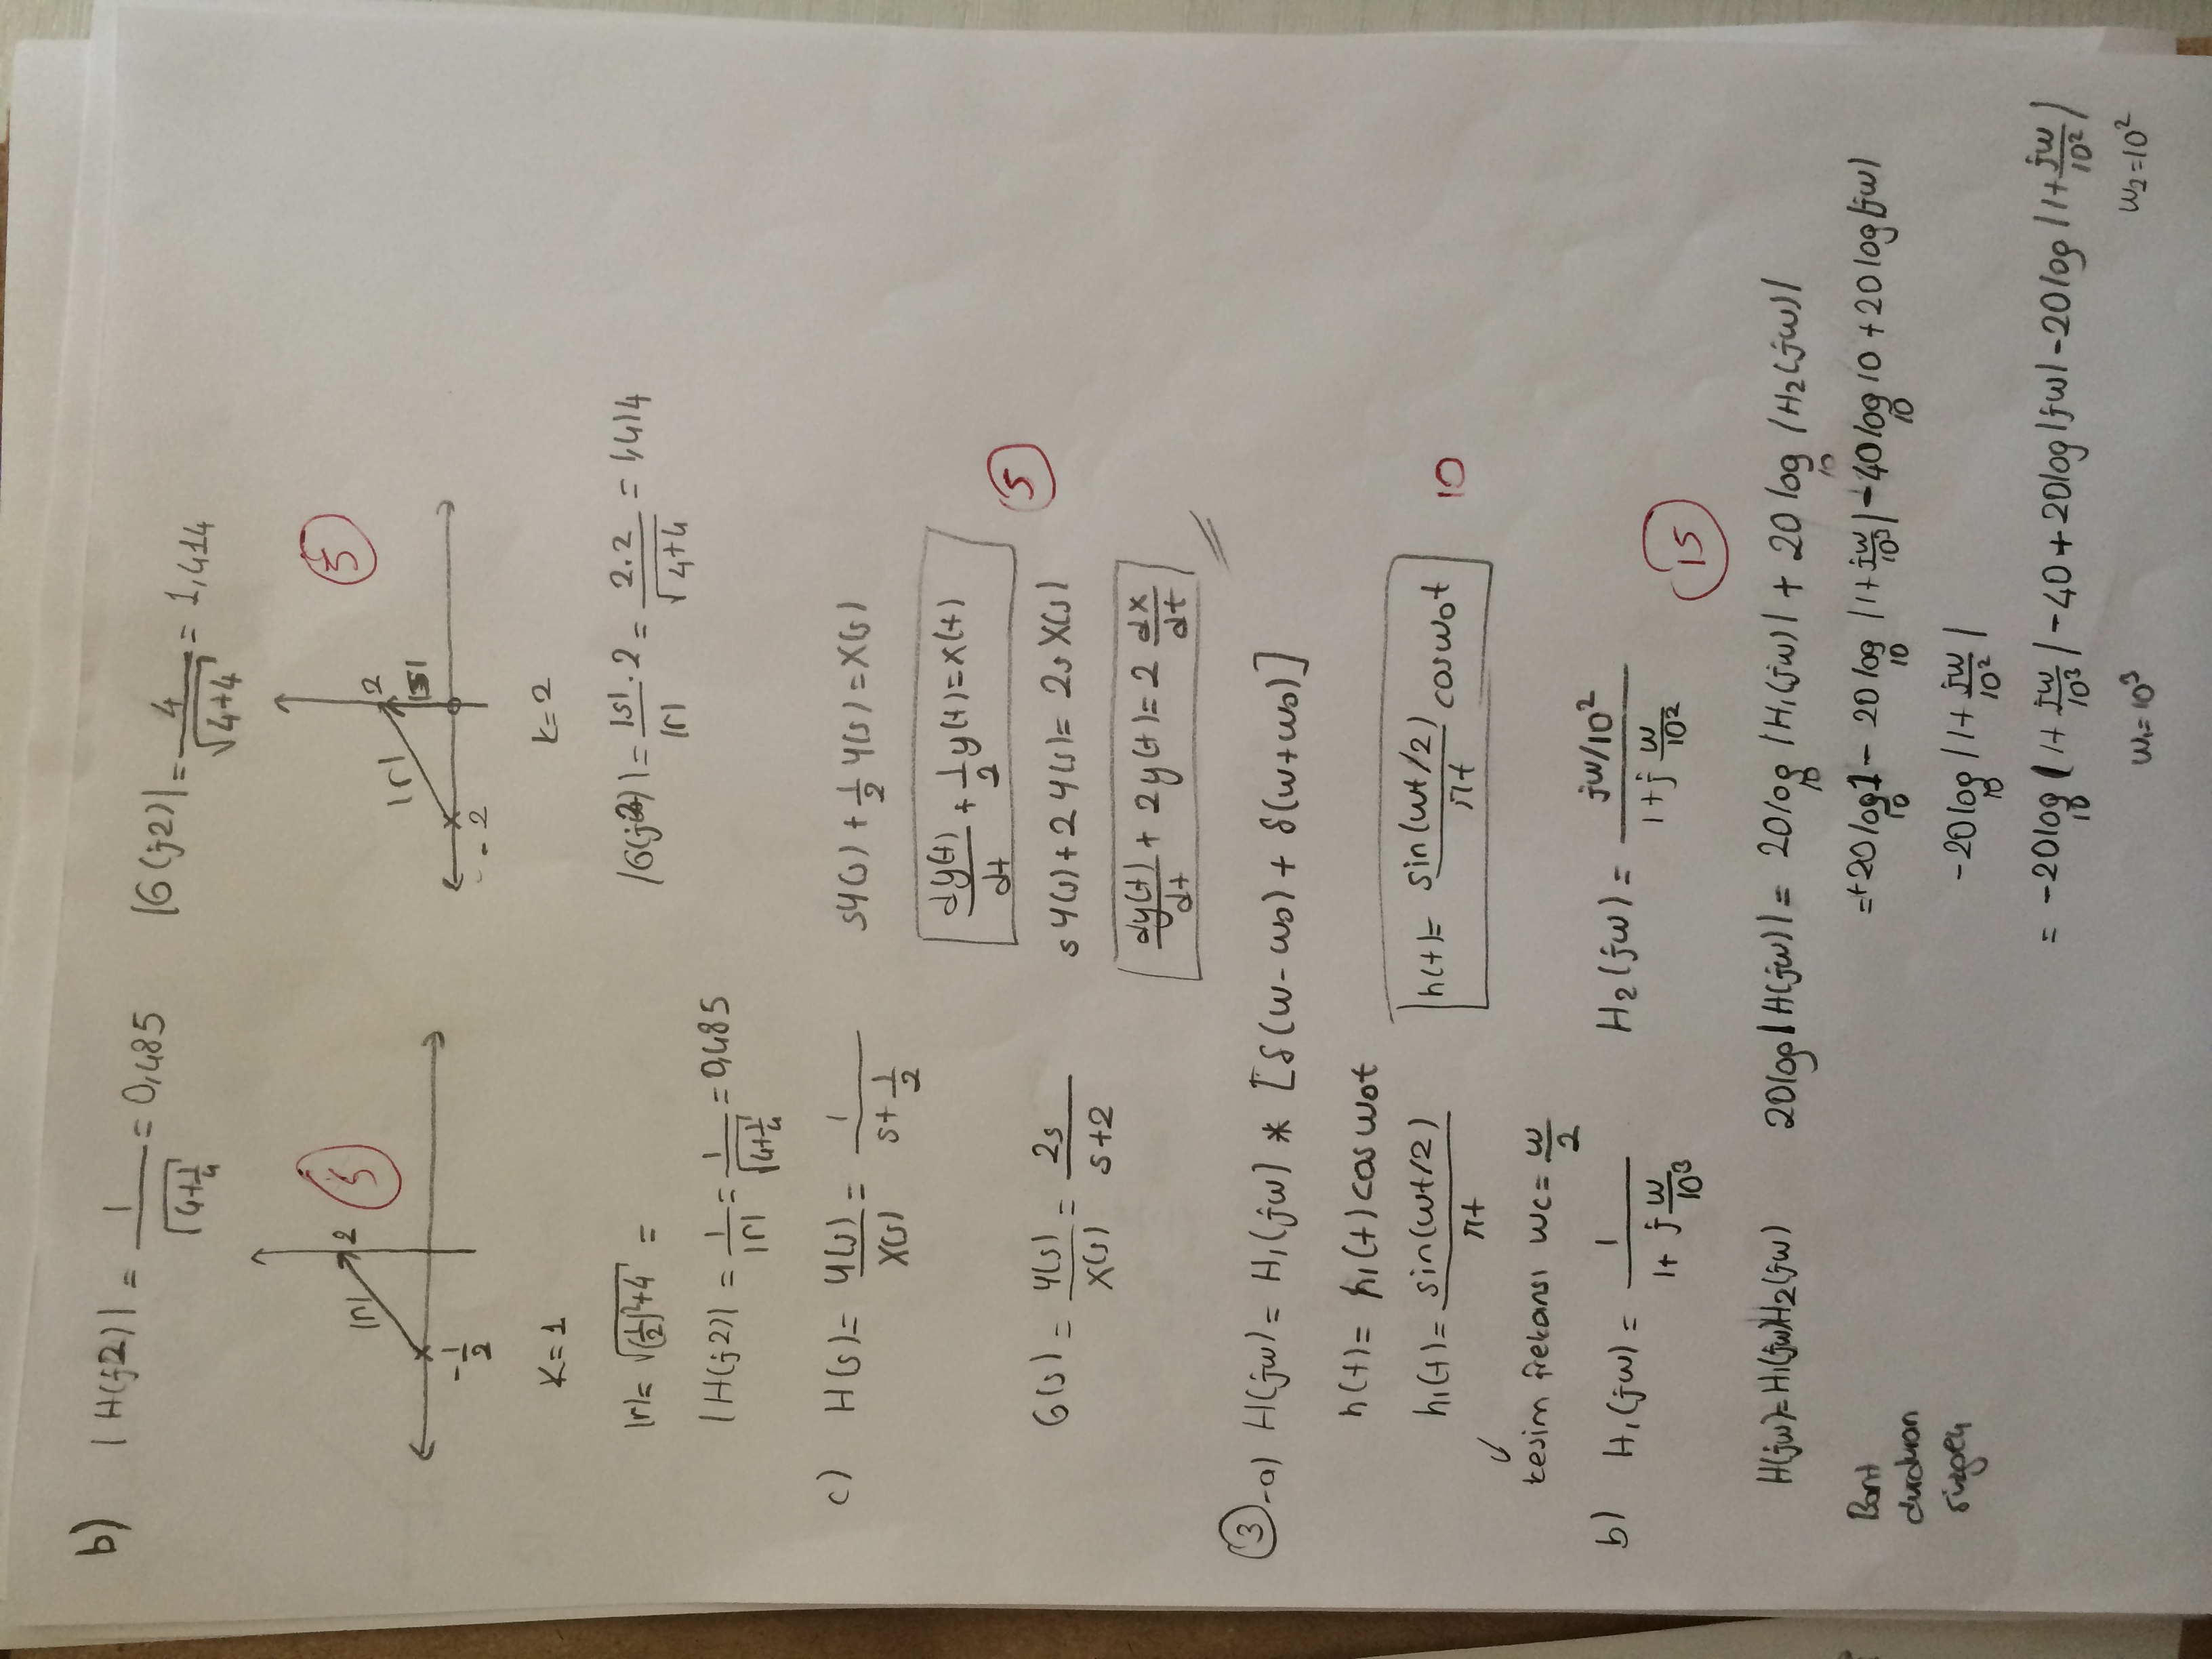 b) |H(j2)| = 1/√(4+1/4) = 0,485
|G(j2)| = 4/√(4+4) = 1,414
|r| 2 5
-1/2
|r| 2 |s| 5
-2
K=1
k=2
|r|= √((1/2)²+4) =
|G(j2)| = |s|.2/|r| = 2.2/√(4+4) = 1,414
|H(j2)| = 1/|r| = 1/√(4+1/4) = 0,485
c) H(s)= Y(s)/X(s) = 1/(s+1/2)
sY(s) + 1/2 Y(s) = X(s)
dy(t)/dt + 1/2 y(t) = x(t)
5
G(s) = Y(s)/X(s) = 2s/(s+2)
sY(s)+2Y(s)= 2sX(s)
dy(t)/dt + 2y(t)= 2 dx/dt
3-a) H(jw)= H₁(jw) * [δ(w-w₀) + δ(w+w₀)]
h(t)= h₁(t) cosw₀t
h₁(t)= sin(wt/2)/πt
h(t)= sin(wt/2)/πt cosw₀t
10
kesim frekansı wc= w/2
b) H₁(jw) = 1/(1+j w/10³)
H₂(jw) = (jw/10²)/(1+j w/10²)
15
H(jw)=H₁(jw)H₂(jw)
20log|H(jw)| = 20log₁₀|H₁(jw)| + 20log₁₀|H₂(jw)|
Bant
durduran
süzgeç
=+20log₁₀1 - 20log₁₀|1+jw/10³| -40log₁₀10 + 20log|jw|
-20log₁₀|1+jw/10²|
= -20log₁₀|1+jw/10³| -40 + 20log|jw| -20log|1+jw/10²|
w₁=10³
w₂=10²